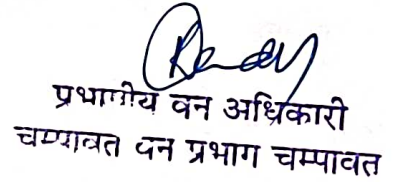 प्रभागीय वन अधिकारी
चम्पावत वन प्रभाग चम्पावत